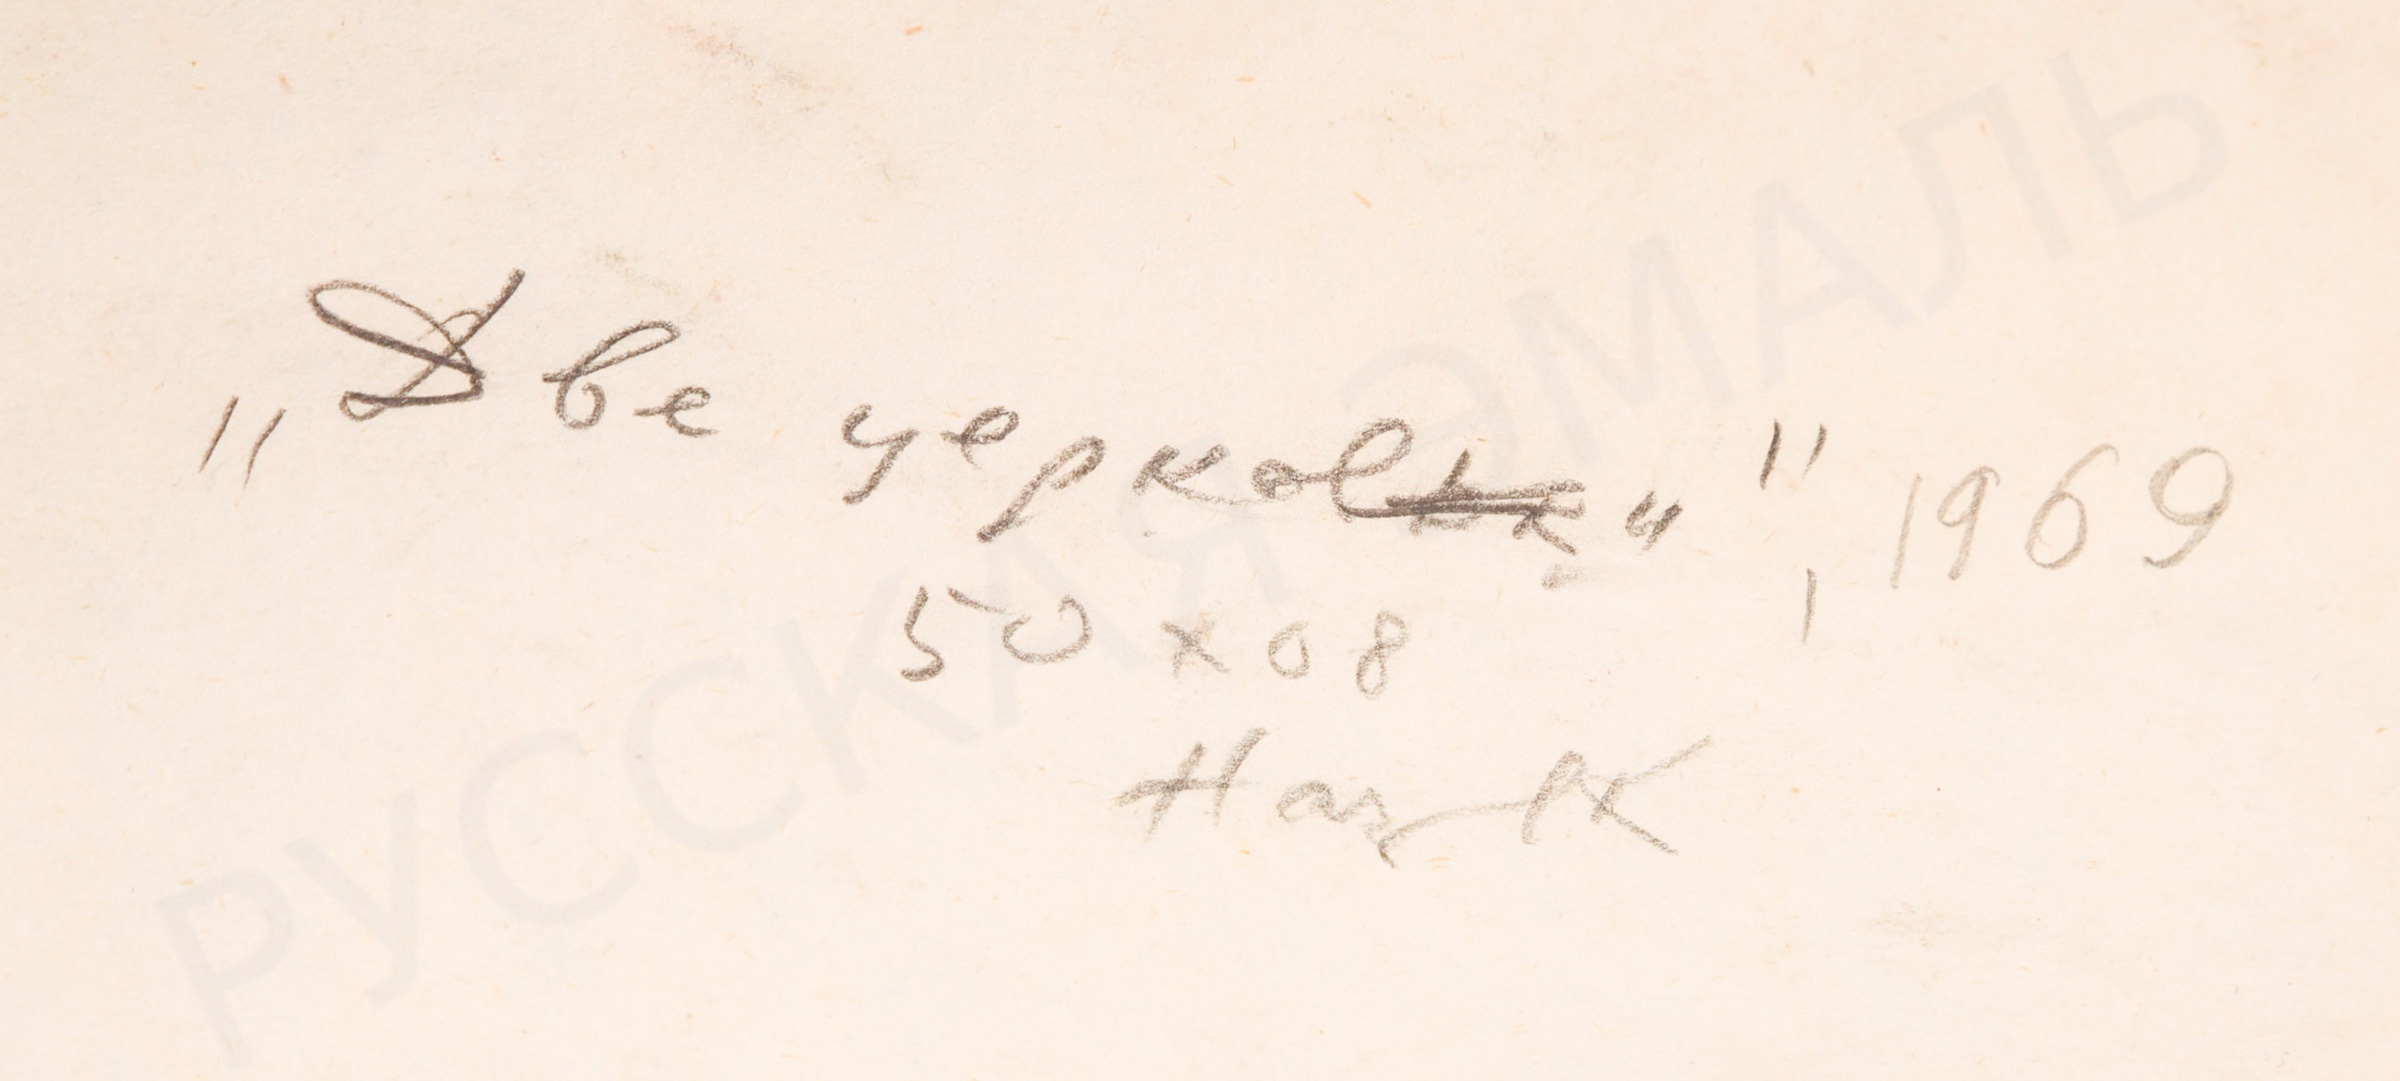 „Две церкови", 1969
50 x 68
РУССКАЯ ЭМАЛЬ